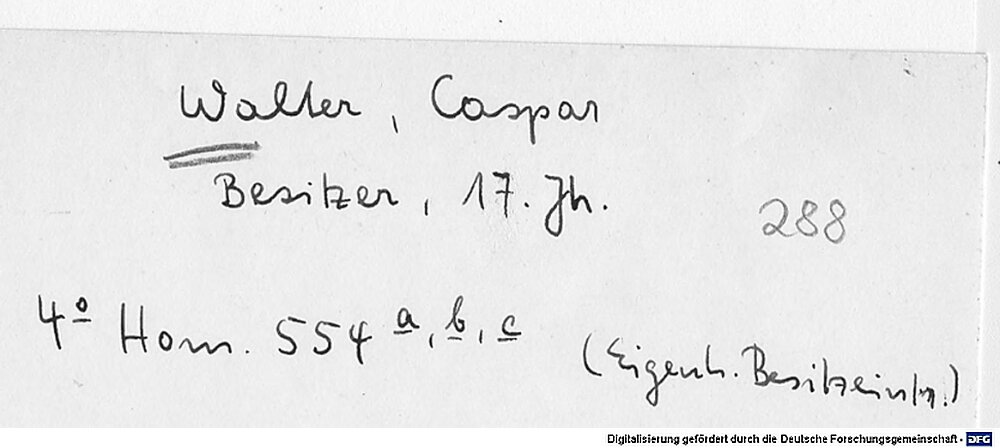 Walter, Caspar
Besitzer, 17. Jh.
288
4º Hom. 554 a, b, c (Eigenh. Besitzeintr.)
Digitalisierung gefördert durch die Deutsche Forschungsgemeinschaft - DFG